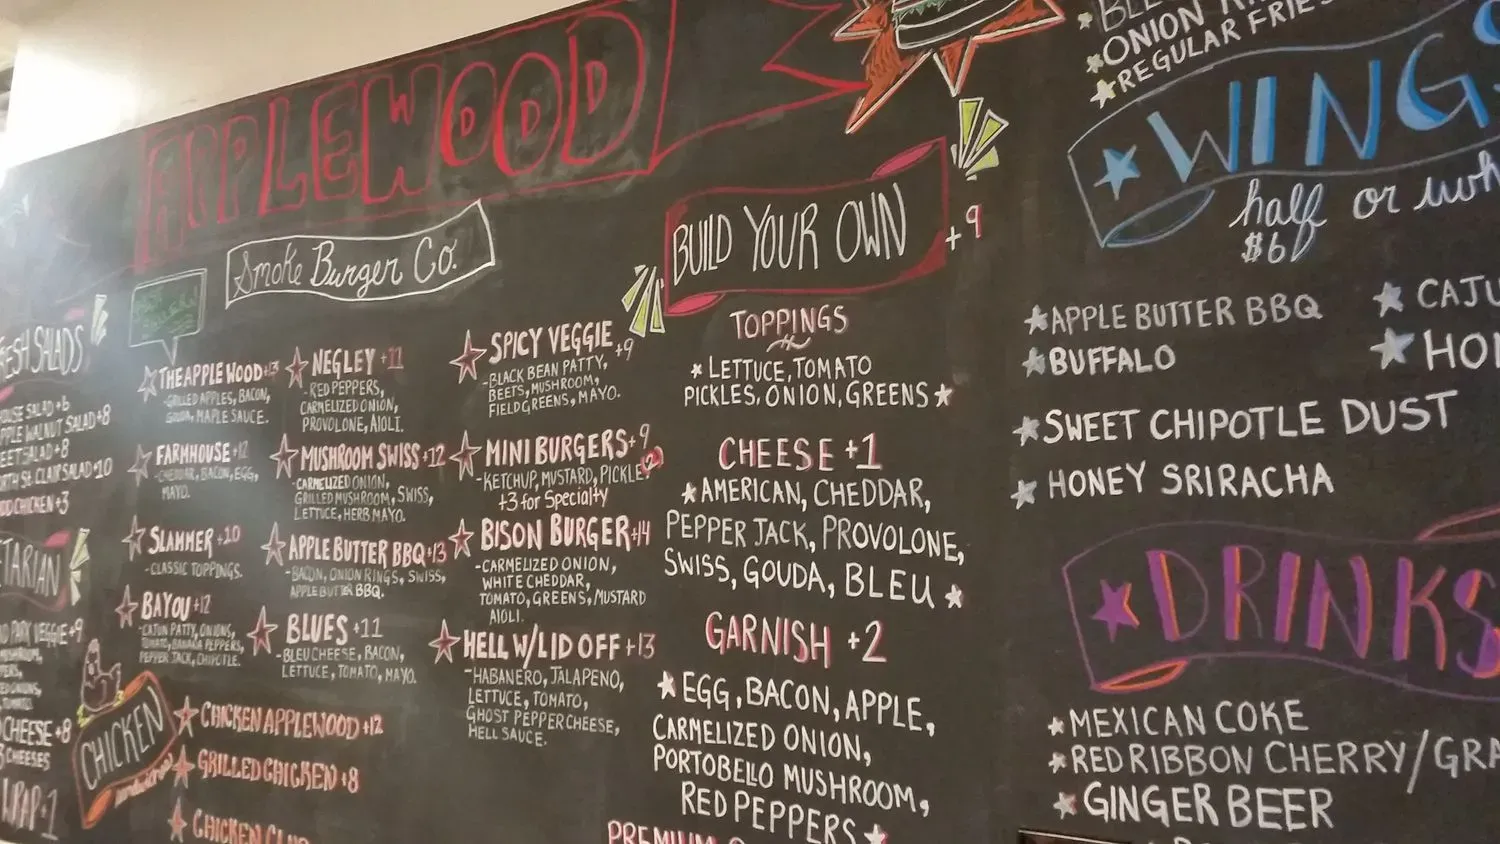 APPLEWOOD
Smoke Burger Co.
SALADS
SALAD +6
WALNUT SALAD +8
SALAD +8
ST. CLAIR SALAD +10
CHICKEN +3
VEGGIE +9
CHEESE +8
CHEESES
WRAP +1
THE APPLEWOOD +13
-GRILLED APPLES, BACON,
GOUDA, MAPLE SAUCE.
FARMHOUSE +12
-CHEDDAR, BACON, EGG,
MAYO.
SLAMMER +10
-CLASSIC TOPPINGS.
BAYOU +12
-CAJUN PATTY, ONIONS,
TOMATO, BANANA PEPPERS,
PEPPER JACK, CHIPOTLE.
NEGLEY +11
-RED PEPPERS,
CARMELIZED ONION,
PROVOLONE, AIOLI.
MUSHROOM SWISS +12
-CARMELIZED ONION,
GRILLED MUSHROOM, SWISS,
LETTUCE, HERB MAYO.
APPLE BUTTER BBQ +13
-BACON, ONION RINGS, SWISS,
APPLE BUTTER BBQ.
BLUES +11
-BLEU CHEESE, BACON,
LETTUCE, TOMATO, MAYO.
SPICY VEGGIE +9
-BLACK BEAN PATTY,
BEETS, MUSHROOM,
FIELD GREENS, MAYO.
MINI BURGERS +9
-KETCHUP, MUSTARD, PICKLE (2)
+3 for Specialty
BISON BURGER +14
-CARMELIZED ONION,
WHITE CHEDDAR,
TOMATO, GREENS, MUSTARD
AIOLI.
HELL W/LID OFF +13
-HABANERO, JALAPENO,
LETTUCE, TOMATO,
GHOST PEPPER CHEESE,
HELL SAUCE.
CHICKEN
sandwiches
CHICKEN APPLEWOOD +12
GRILLED CHICKEN +8
CHICKEN CLUB
BUILD YOUR OWN +9
TOPPINGS
LETTUCE, TOMATO
PICKLES, ONION, GREENS
CHEESE +1
AMERICAN, CHEDDAR,
PEPPER JACK, PROVOLONE,
SWISS, GOUDA, BLEU
GARNISH +2
EGG, BACON, APPLE,
CARMELIZED ONION,
PORTOBELLO MUSHROOM,
RED PEPPERS
PREMIUM
ONION
REGULAR FRIES
WINGS
half or
$6
APPLE BUTTER BBQ
BUFFALO
SWEET CHIPOTLE DUST
HONEY SRIRACHA
DRINKS
MEXICAN COKE
RED RIBBON CHERRY/
GINGER BEER